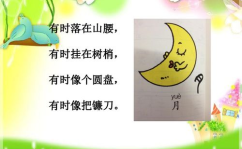 有时落在山腰，
有时挂在树梢，
有时像个圆盘，
有时像把镰刀。
yuè
月